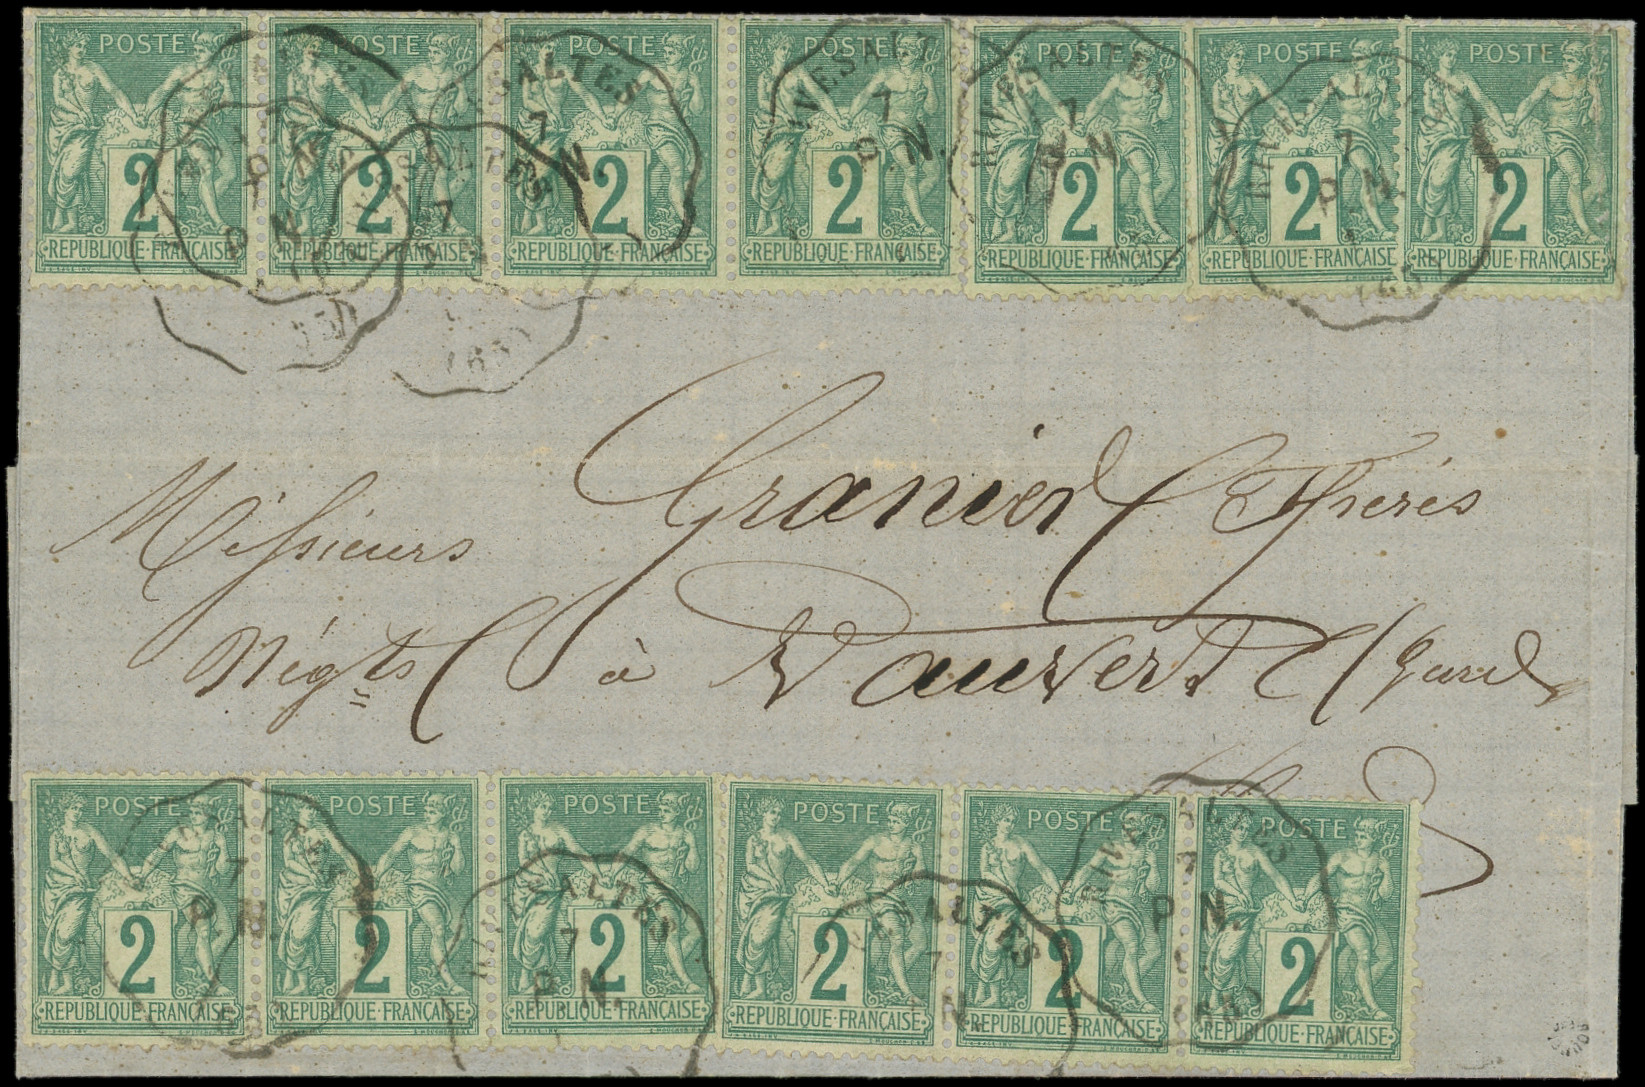 POSTE POSTE POSTE POSTE POSTE POSTE POSTE
2 2 2 2 2 2 2
REPUBLIQUE·FRANÇAISE REPUBLIQUE·FRANÇAISE REPUBLIQUE·FRANÇAISE REPUBLIQUE·FRANÇAISE REPUBLIQUE·FRANÇAISE REPUBLIQUE·FRANÇAISE REPUBLIQUE·FRANÇAISE
RIVESALTES
7
P. N.
(65)
Messieurs Granier Frères
Négts à Vauvert
(Gard)
POSTE POSTE POSTE POSTE POSTE POSTE
2 2 2 2 2 2
REPUBLIQUE·FRANÇAISE REPUBLIQUE·FRANÇAISE REPUBLIQUE·FRANÇAISE REPUBLIQUE·FRANÇAISE REPUBLIQUE·FRANÇAISE REPUBLIQUE·FRANÇAISE
RIVESALTES
7
P. N.